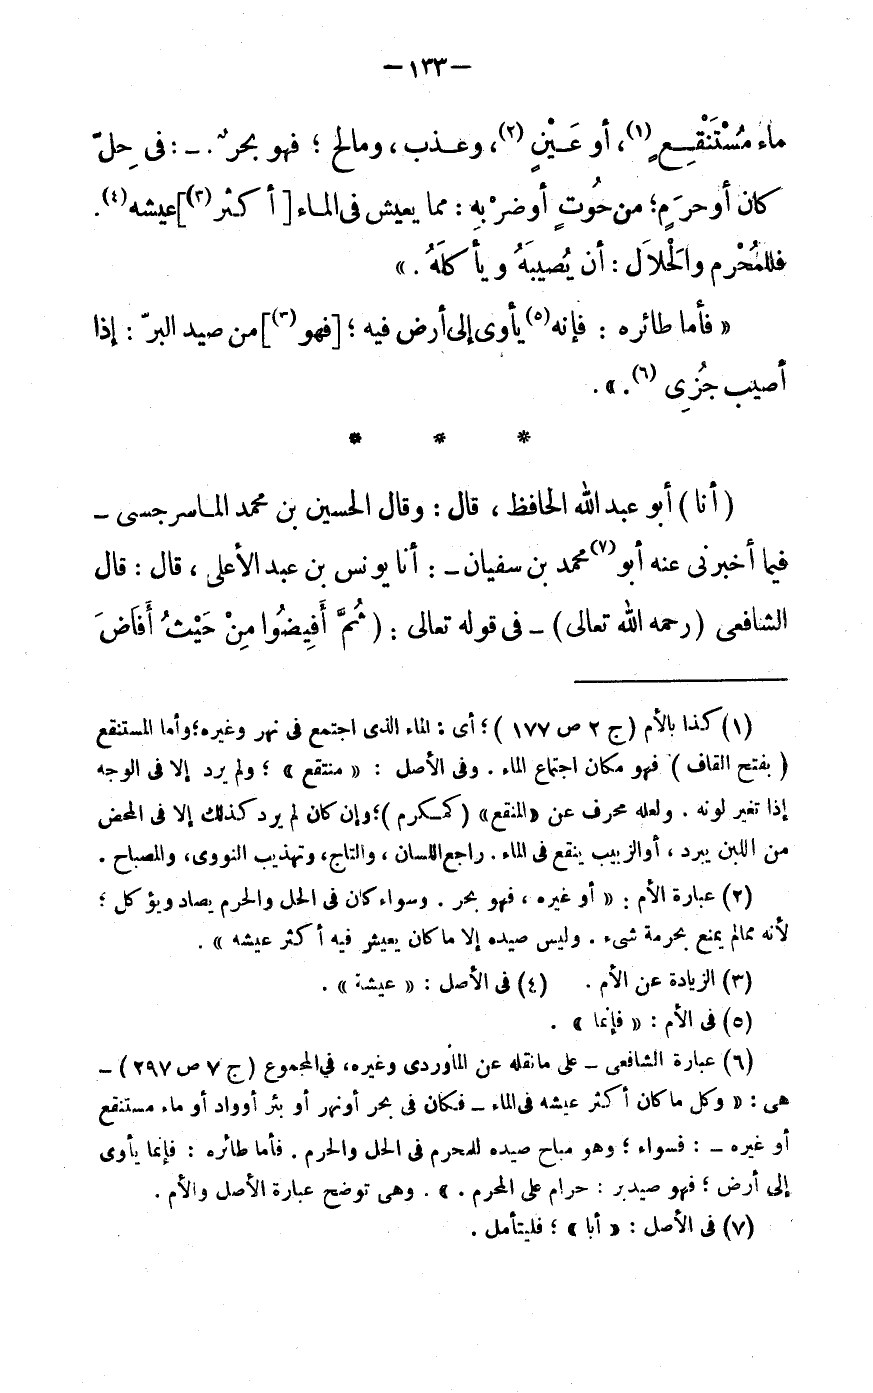 — ١٣٣ —
ماء مُسْتَنْقِعٍ (١)، أو عَيْنٍ (٢)، وعذب ، ومالح ؛ فهو بحرٌ . ــ : فى حِلّ
كان أو حرَمٍ ؛ من حُوتٍ أو ضرْبِهِ : مما يعيش فى الماء [ أكثر (٣)] عيشه (٤).
فللمُحْرِم والحَلاَل : أن يُصيبَهُ ويأكلَهُ . »
« فأما طائره : فإنه (٥) يأوى إلى أرض فيه ؛ [فهو (٣)] من صيد البرّ : إذا
أصيب جُزِى (٦) . » .
* * *
( أنا ) أبو عبد الله الحافظ ، قال : وقال الحسين بن محمد الماسرجسى ــ
فيما أخبرنى عنه أبو (٧) محمد بن سفيان ــ : أنا يونس بن عبد الأعلى ، قال : قال
الشافعى ( رحمه الله تعالى ) ــ فى قوله تعالى : ( ثُمَّ أَفِيضُوا مِنْ حَيْثُ أَفَاضَ
(١) كذا بالأم ( ج ٢ ص ١٧٧ ) ؛ أى : الماء الذى اجتمع فى نهر وغيره ؛ وأما المستنقع
( بفتح القاف ) فهو مكان اجتماع الماء . وفى الأصل : « منتقع » ؛ ولم يرد إلا فى الوجه
إذا تغير لونه . ولعله محرف عن « المنقع » ( كمكرم ) ؛ وإن كان لم يرد كذلك إلا فى المحض
من اللبن يبرد ، أو الزبيب ينقع فى الماء . راجع اللسان ، والتاج ، وتهذيب النووى ، والمصباح .
(٢) عبارة الأم : « أو غيره ، فهو بحر . وسواء كان فى الحل والحرم يصاد ويؤكل ؛
لأنه ممالم يمنع بحرمة شىء . وليس صيده إلا ما كان يعيش فيه أكثر عيشه » .
(٣) الزيادة عن الأم . (٤) فى الأصل : « عيشة » .
(٥) فى الأم : « فإنما » .
(٦) عبارة الشافعى ــ على مانقله عن المأوردى وغيره، فى المجموع ( ج ٧ ص ٢٩٧ ) ــ
هى : « وكل ما كان أكثر عيشه فى الماء ــ فكان فى بحر أونهر أو بئر أوواد أو ماء مستنقع
أو غيره ــ : فسواء ؛ وهو مباح صيده للمحرم فى الحل والحرم . فأما طائره : فإنما يأوى
إلى أرض ؛ فهو صيدبر : حرام على المحرم . » . وهى توضح عبارة الأصل والأم .
(٧) فى الأصل : « أبا » ؛ فليتأمل .